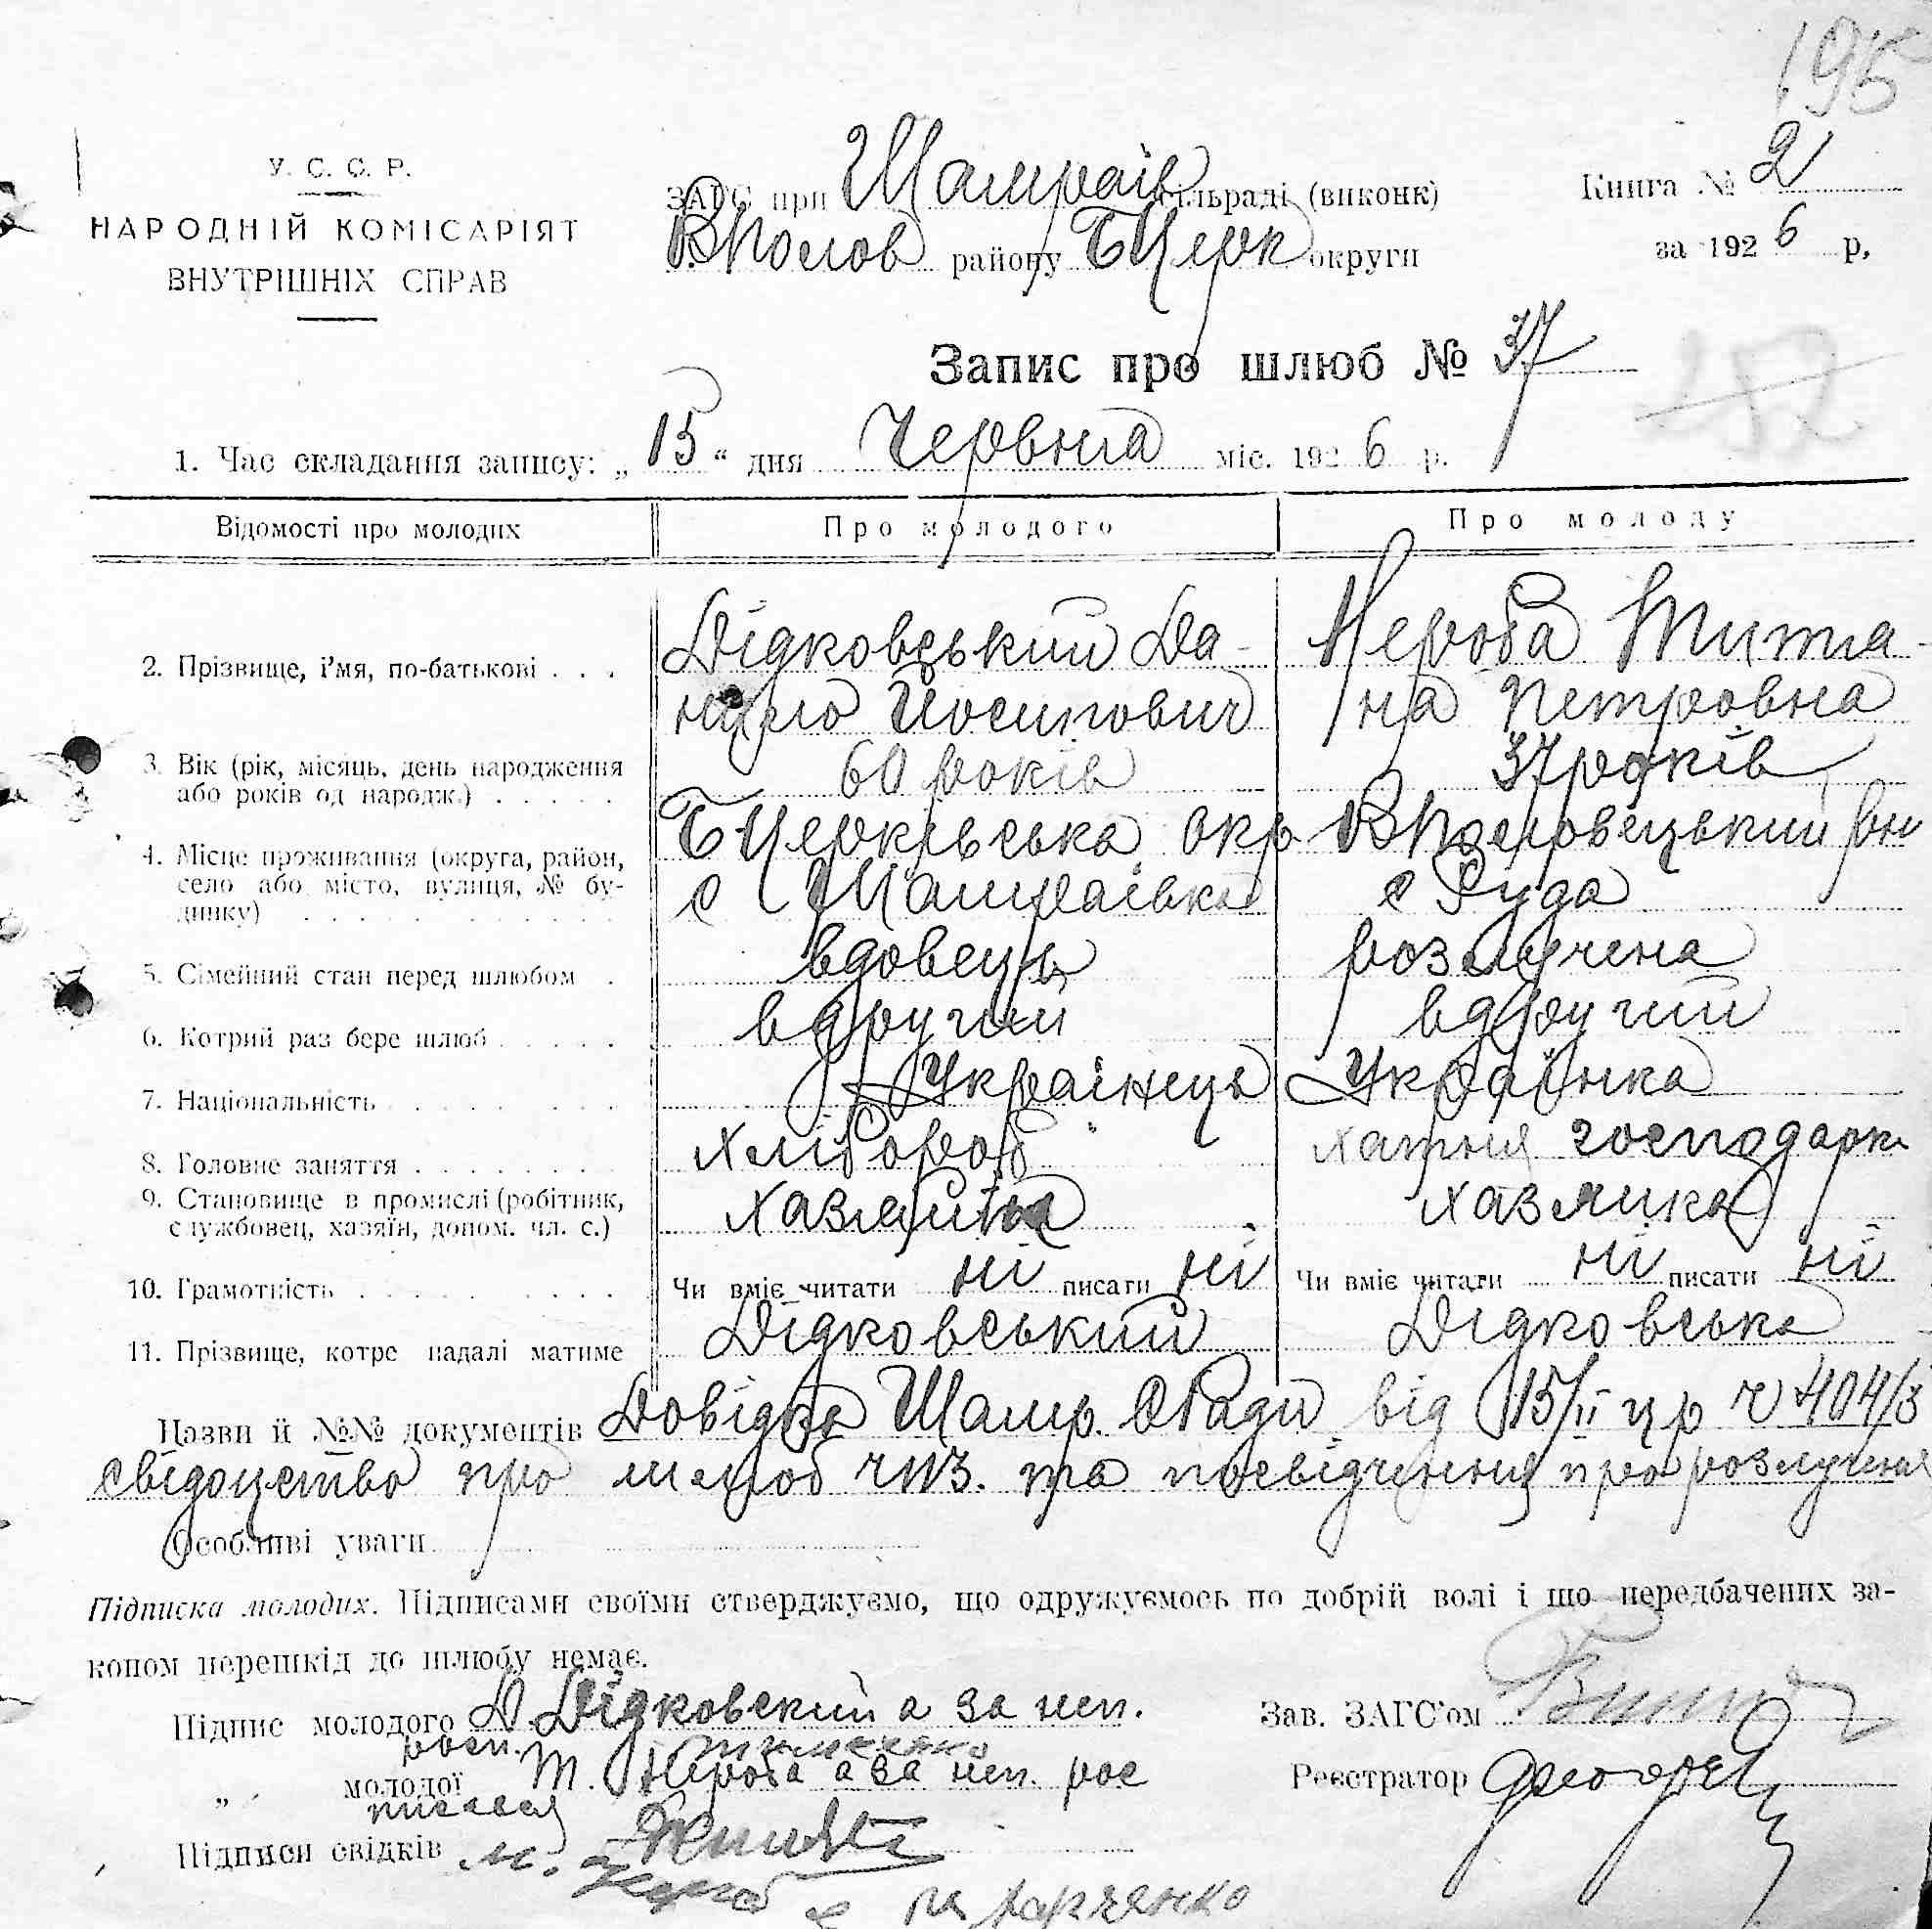 195
У. С. С. Р.
НАРОДНІЙ КОМІСАРІЯТ
ВНУТРІШНІХ СПРАВ
ЗАГС при Шамраїв сільраді (виконк)
В.Полов району БЦерк округи
Книга № 2
за 1926 р.
Запис про шлюб № 37
1. Час складання запису: „15“ дня Червня міс. 1926 р.
Відомості про молодих Про молодого Про молоду
2. Прізвище, і'мя, по-батькові . . . Дідковський Да- Нероба Титя-
нило Йосипович на Петровна
3. Вік (рік, місяць, день народження 60 років 37 років
або років од народж.) . . . . .
БЦерківська окр ВПоловецький рн
4. Місце проживання (округа, район,
село або місто, вулиця, № бу- с Шамраївка с Руда
динку) . . . . . . . . . . . .
5. Сімейний стан перед шлюбом . вдовець розлучена
6. Котрий раз бере шлюб . . . . . вдругий вдругий
7. Національність . . . . . . . Українець Українка
8. Головне заняття . . . . . . . . хлібороб хатня господарк
9. Становище в промислі (робітник, хазяїн хазяйка
службовец, хазяїн, допом. чл. с.)
10. Грамотність . . . . . . . . . . Чи вміє читати ні писати ні Чи вміє читати ні писати ні
11. Прізвище, котре надалі матиме Дідковський Дідковська
Назви й №№ документів Довідка Шамр. СРади від 15/II ц р ч 404/3
свідоцтво про шлюб ч113. та посвідчення про розлучення
Особливі уваги
Підписка молодих. Підписами своїми стверджуємо, що одружуємось по добрій волі і що передбачених за-
коном перешкід до шлюбу немає.
Підпис молодого Д. Дідковский а за неп.
росп.
„ молодої Т. Нероба а за неп. рос
писався
Підписи свідків
Зав. ЗАГС'ом
Реєстратор